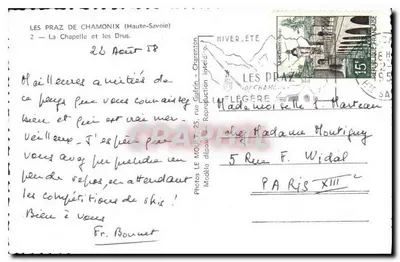 LES PRAZ DE CHAMONIX (Haute-Savoie)
2 - La Chapelle et les Drus.
22 Août 58
Meilleures amitiés de
ce pays que vous connaissez
bien et qui est vrai mer-
veilleux. J'espère que
vous avez pu prendre un
peu de repos, en attendant
les compétitions de skis !
Bien à vous
Fr. Bonnet
Reproduction interdite
HIVER.ÉTÉ
LES PRAZ
DE CHAMONIX
FLÉGÈRE
15F
Mademoiselle J. Marteau
chez Madame Montigny
5 Rue F. Widal
PARIS XIIIe